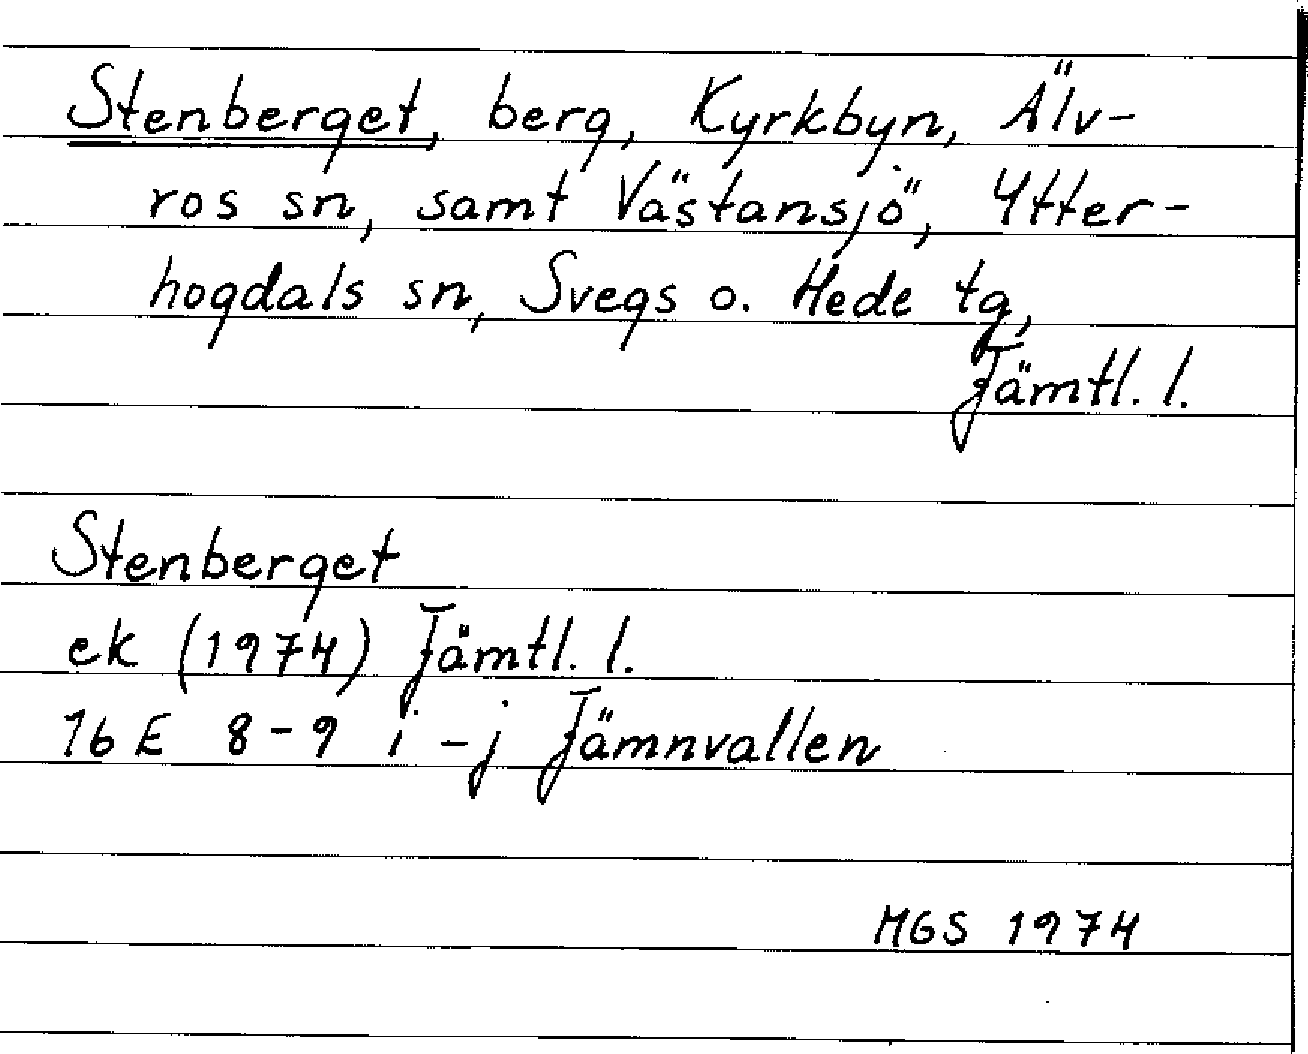 Stenberget, berg, Kyrkbyn, Älv-
ros sn, samt Västansjö, Ytter-
hogdals sn, Svegs o. Hede tg,
Jämtl. l.
Stenberget
ek (1974) Jämtl. l.
16 E 8-9 i-j Jämnvallen
MGS 1974